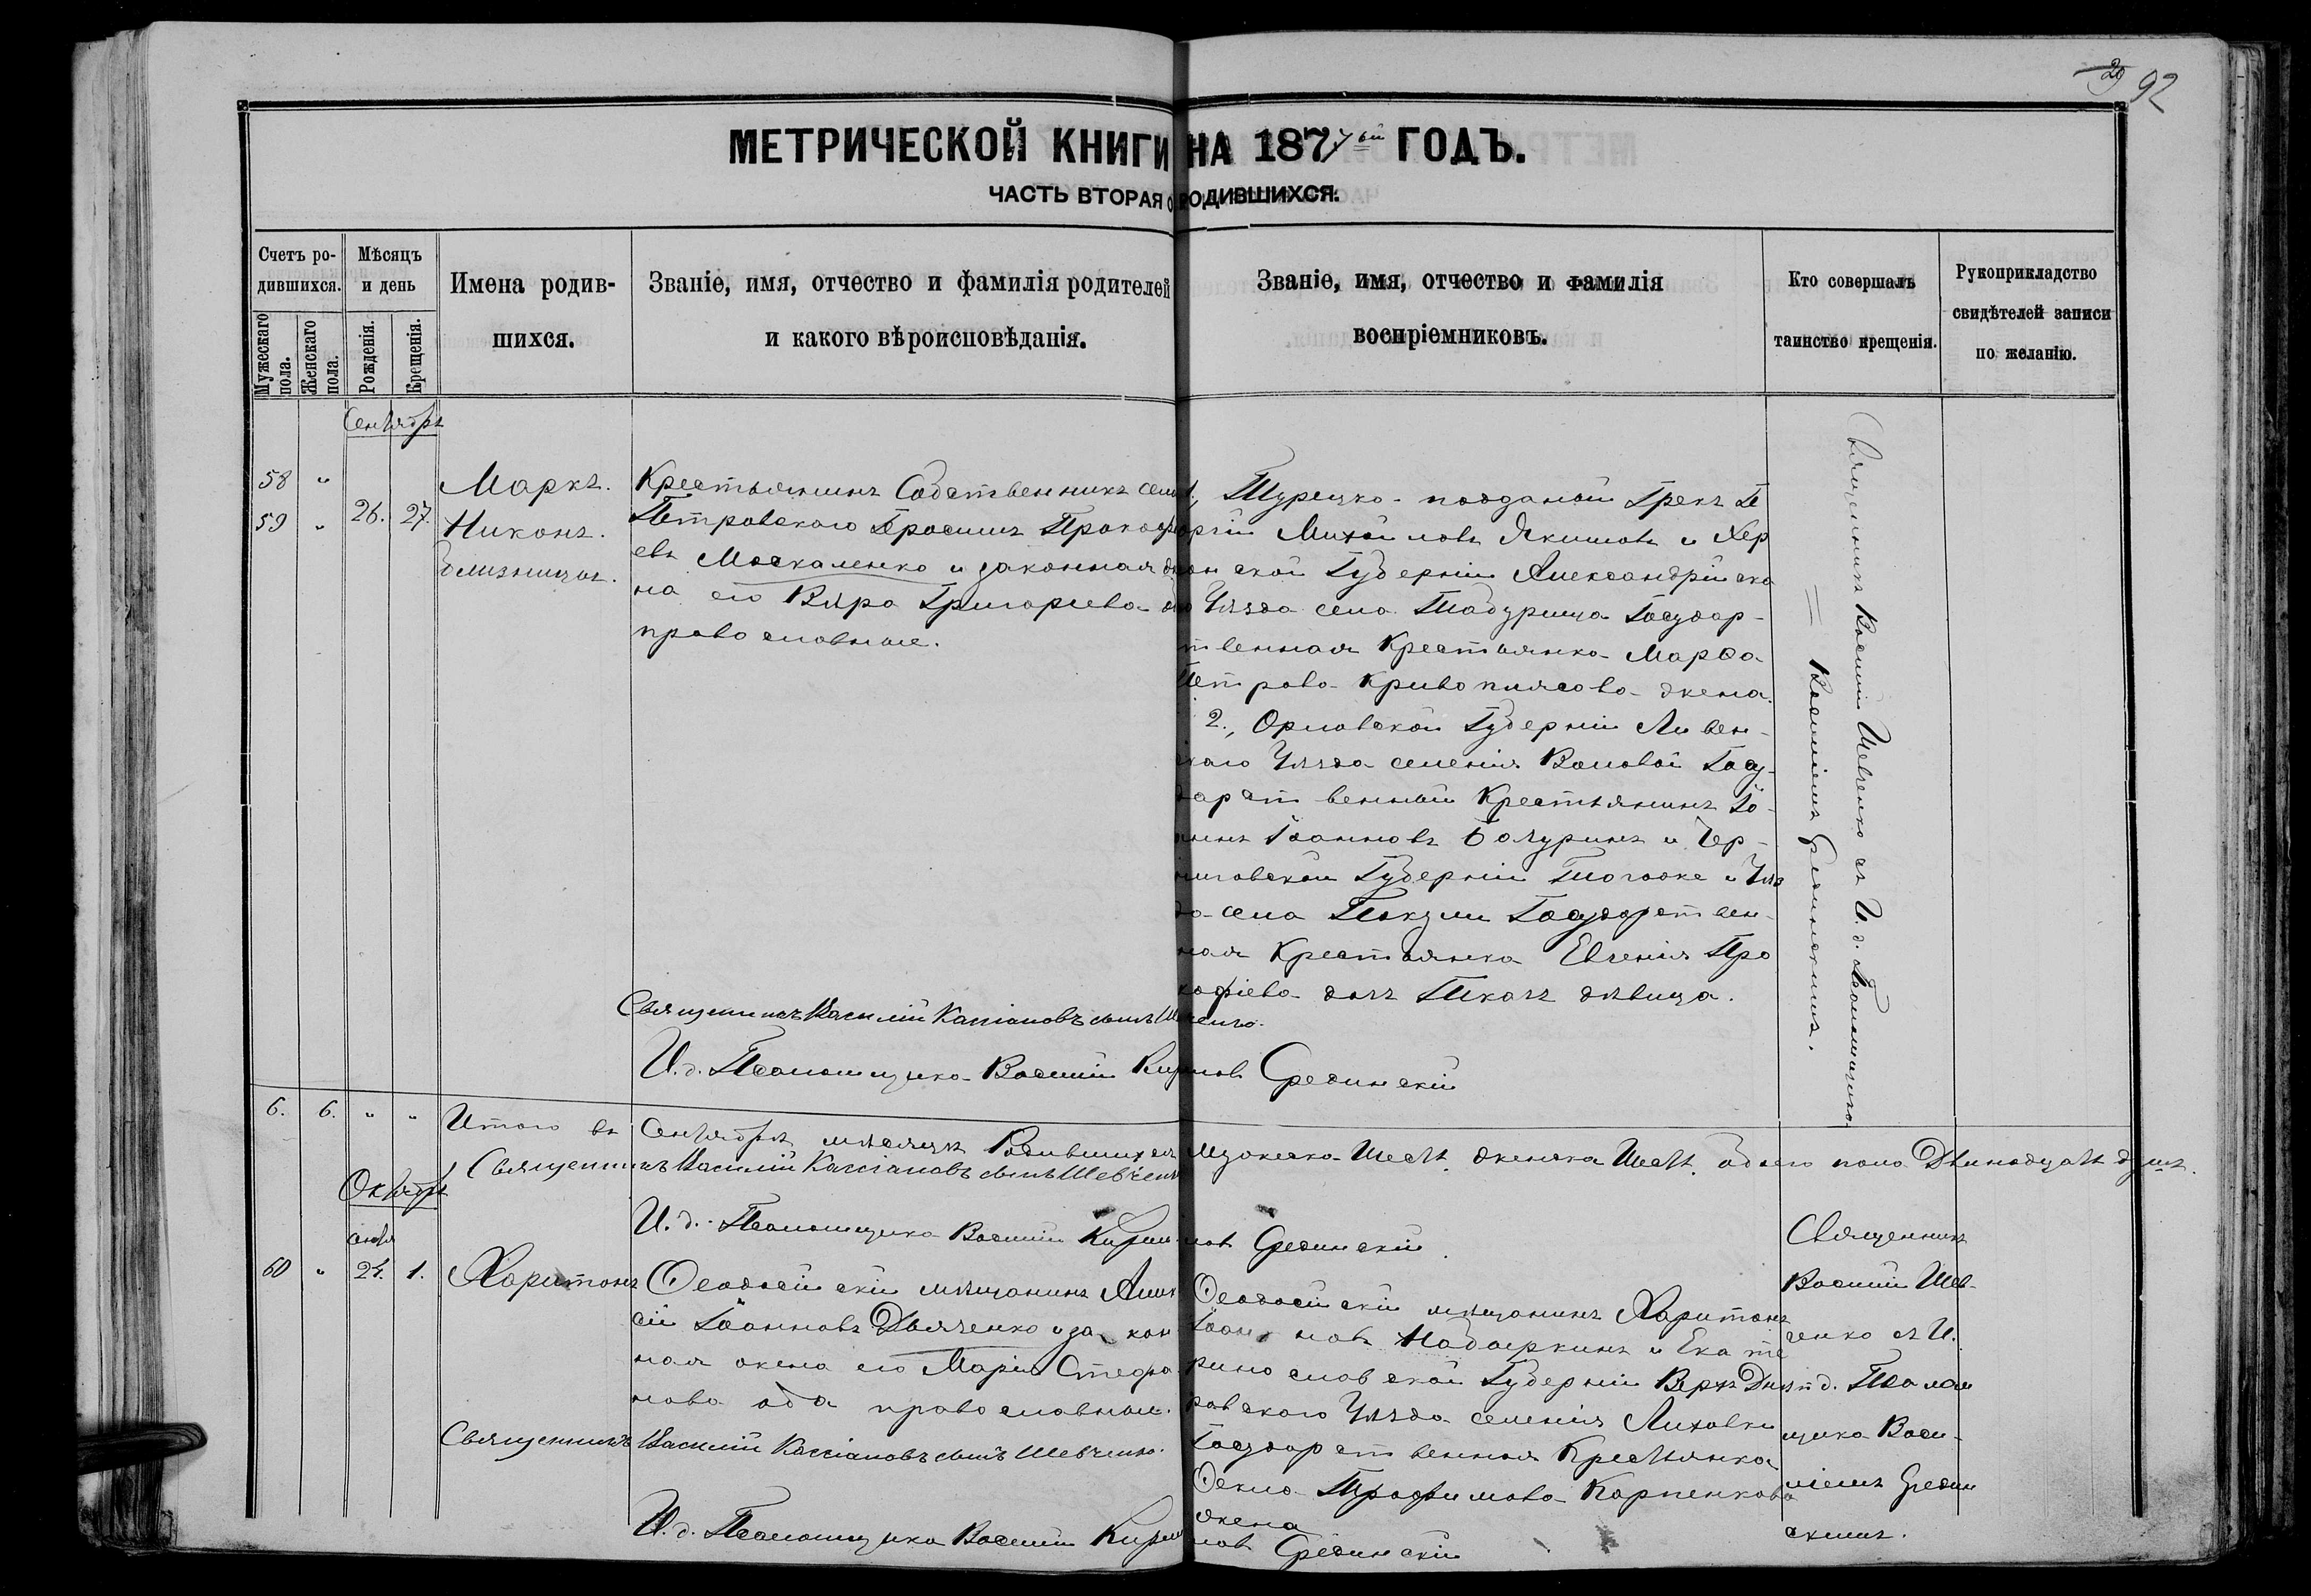 29 92
МЕТРИЧЕСКОЙ КНИГИ НА 1877ый ГОДЪ.
ЧАСТЬ ВТОРАЯ О РОДИВШИХСЯ.
Счетъ ро-
дившихся.
Мужескаго
пола.
Женскаго
пола.
Мѣсяцъ
и день
Рожденія.
Крещенія.
Имена родив-
шихся.
Званіе, имя, отчество и фамилія родителей
и какого вѣроисповѣданія.
Званіе, имя, отчество и фамилія
воспріемниковъ.
Кто совершалъ
таинство крещенія.
Рукоприкладство
свидѣтелей записи
по желанію.
Сентябрь
58 „ 26. 27. Маркъ.
59 „ Никонъ.
близнецы.
Крестьянинъ Собственникъ села
Петровского
Москаленко и законная же
на его Вѣра Григорьева оба
православные.
1, Турецко-подданый Грекъ Ге
оргій Михайловъ Якимовъ и Хер
сонской Губерніи Александрійска
го Уѣзда села Государ-
ственная Крестьянка Марѳа
Петрова жена.
2., Орловской Губерніи Ливен-
скаго Уѣзда селенія Госу-
дарственный Крестьянинъ Іо-
аннъ Іоанновъ и Чер-
ниговской Губерніи Уѣз
да села Государствен-
ная Крестьянка Евгенія Про
кофіева дочь Ткачъ дѣвица.
Священникъ Василій Шевченко съ И. д. Псаломщика
Василіемъ Срединскимъ.
Священникъ Василій Кассіановъ сынъ Шевченко.
И. д. Псаломщика Василій Кириловъ Срединскій
6. 6. „ „ Итого въ Сентябрѣ мѣсяцѣ Родившихся Мужеска Шесть. женска Шесть. обоего пола Двѣнадцать душъ.
Священникъ Василій Кассіановъ сынъ Шевченко
И. д. Псаломщика Василій Кириловъ Срединскій.
Октябрь
сентя
60 „ 24. 1. Харитонъ
Ѳеодосійскій мѣщанинъ Алек
сій Іоанновъ Дьяченко и закон
ная жена его Марія Стефа
нова оба православные.
Ѳеодосійскій мѣщанинъ Харитонъ
Іоанновъ и Екате
ринославской Губерніи ВерхДнѣп
ровскаго Уѣзда селенія Лиховки
Государственная Крестьянка
Ѳекла Трофимова Карпенкова
жена
Священникъ
Василій Шев-
ченко съ И.
д. Псалом
щика Васи-
ліемъ Средин
скимъ.
Священникъ Василій Кассіановъ сынъ Шевченко.
И. д. Псаломщика Василій Кириловъ Срединскій